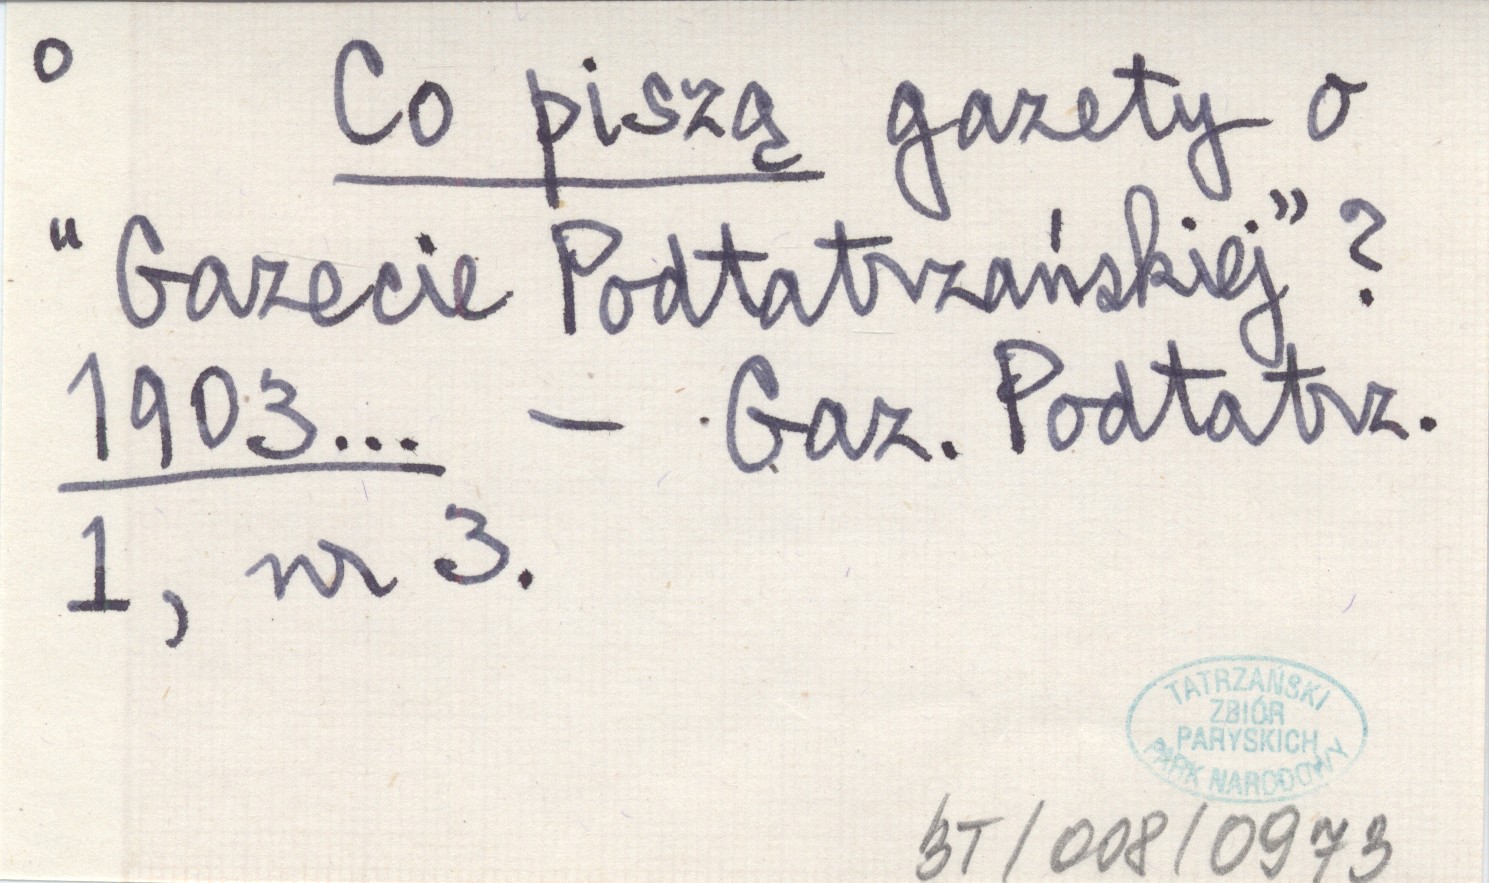 o Co piszą gazety o
"Gazecie Podtatrzańskiej"?
1903... - Gaz. Podtatrz.
1, nr 3.
TATRZAŃSKI
ZBIÓR
PARYSKICH
PARK NARODOWY
BT/008/0973